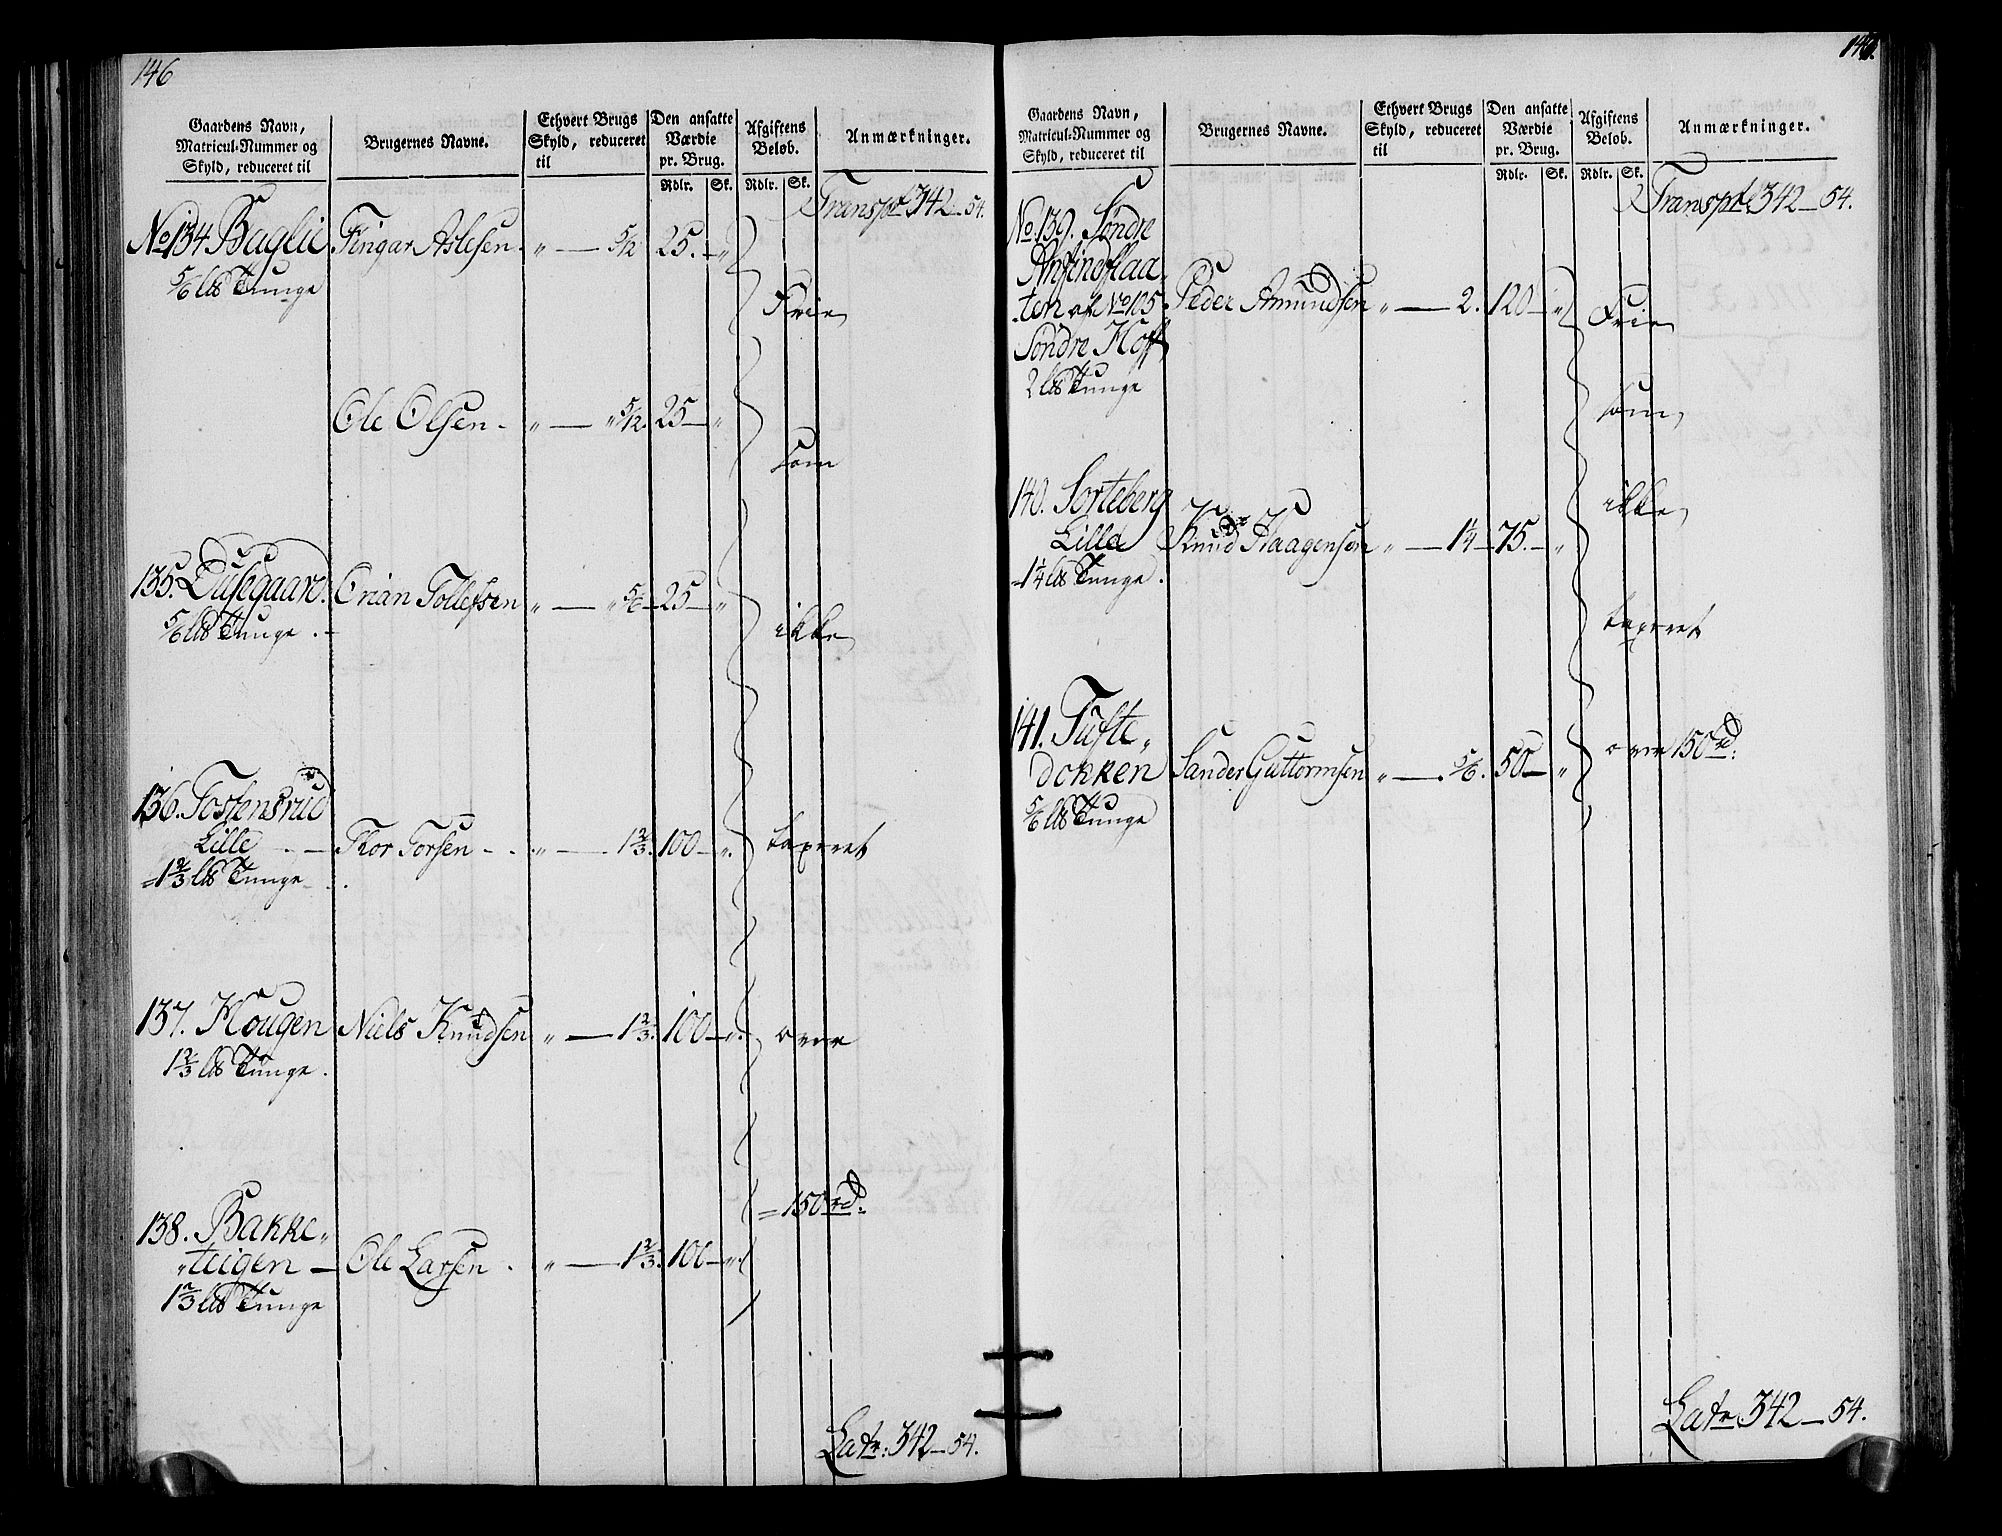 146
Gaardens Navn,
Matricul-Nummer og
Skyld, reduceret til
Brugernes Navne.
Ethvert Brugs
Skyld, reduceret
til
Den ansatte
Værdie
pr. Brug.
Rdlr. Sk.
Afgiftens
Beløb.
Rdlr. Sk.
Anmærkninger.
Transpt 342 – 54.
No 134 Baglie Fingar Aslesen. " — 5/12 25. – "
5/6 lb Tunge
Frie
Ole Olsen - " — " 5/12. 25 – "
som
135. Dulsgaard. Orian Tollefsen " — " 5/6 – 25 – "
5/6 lb Tunge . –
ikke
136. Tostensrud
Lille . – Thor Torsen - . " — 1 2/3. 100 – ". taxeret
= 1 2/3 lb Tunge -
137. Hougen Niels Knudsen " — 1 2/3. 100 – ". over
1 2/3 lb Tunge .
= 150 rd.
138. Bakke "
" teigen – Ole Larsen . " — 1 2/3. 100 – "
1 2/3 lb Tunge
Latr. 342 – 54.
Gaardens Navn,
Matricul-Nummer og
Skyld, reduceret til
Brugernes Navne.
Ethvert Brugs
Skyld, reduceret
til
Den ansatte
Værdie
pr. Brug.
Rdlr. Sk.
Afgiftens
Beløb.
Rdlr. Sk.
Anmærkninger.
Transpt 342 – 54.
No. 139. Søndre
Anfinsflaa-
ten af No 105 Peder Amundsen " — 2. 120 – " Frie
Søndre Hoff
2 lb Tunge
som
140. Sorteberg
ikke
Lille Knud Haagensen " — 1 1/4 – 75. – "
= 1 1/4 lb Tunge .
taxeret
141. Tufte "
over 150 rd.
dokken Sander Guttormsen " — . 5/6. 50 – "
5/6 lb Tunge
Latr 342 – 54.